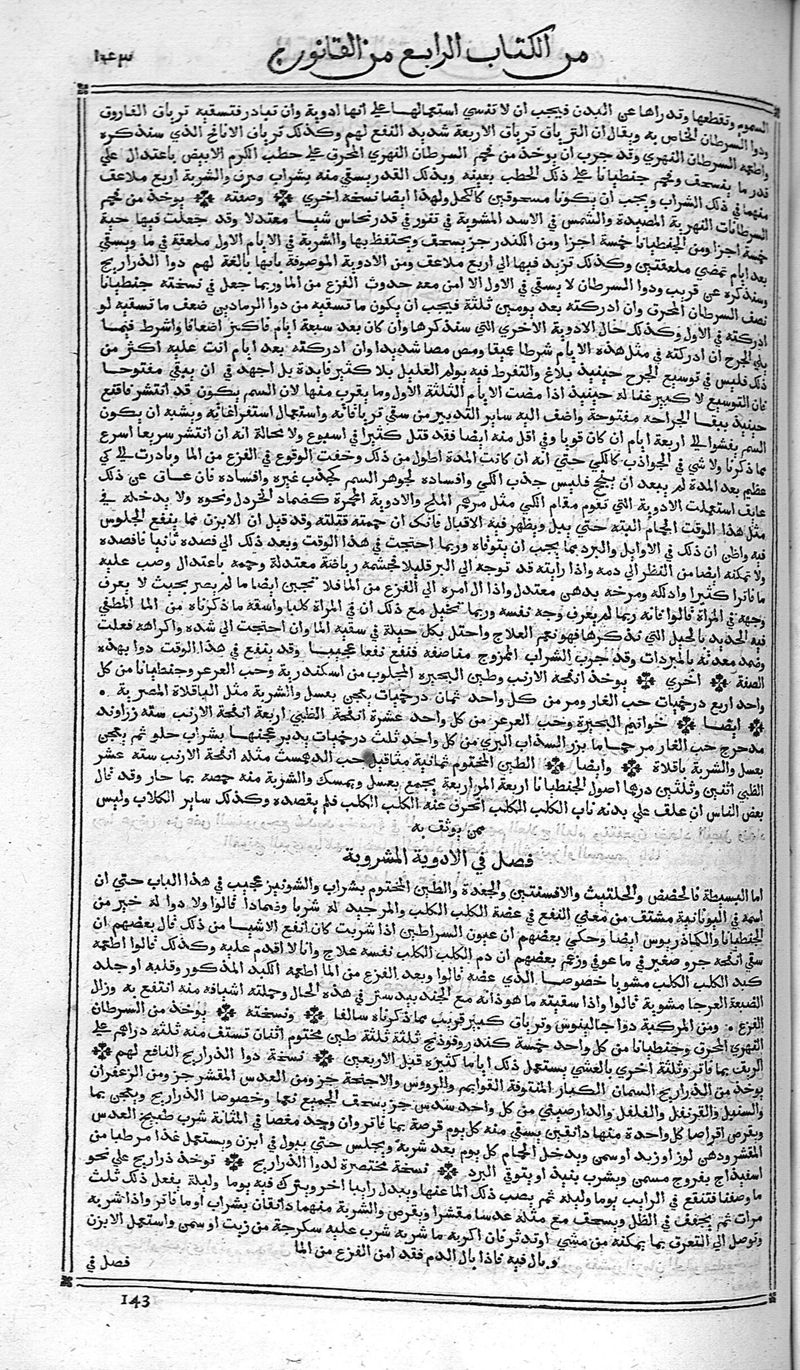 من الكتاب الرابع من القانون ١٤٣
السموم وتقطعها وتدراها عن البدن فيجب ان لا تنسي استعمالهما علي انها ادوية وان تبادر فتسقيه ترياق الفاروق
ودوا السرطان الخاص به ويقال ان الترياق ترياق الاربعة شديد النفع لهم وكذلك ترياق الافاعي الذي سنذكره
واطعمه السرطان النهري وقد جرب ان يوخذ من فحم السرطان النهري المحرق علي حطب الكرم الابيض باعتدال علي
قدر ما ينسحق وفحم جنطيانا علي ذلك الحطب بعينه وبذلك القدر يسقي منه بشراب صرف والشربة اربع ملاعق
منهما في ذلك الشراب ويجب ان يكونا مسحوقين كالكحل ولهذا ايضا نسخه اخري وصفته يوخذ من فحم
السرطانات النهرية المصيدة والشمس في الاسد المشوية في تنور في قدر نحاس شيا معتدلا وقد جعلت فيها حية
خمسة اجزا ومن الجنطيانا خمسة اجزا ومن الكندر جز يسحق ويحتفظ بها والشربة في الايام الاول ملعقة في ما ويسقي
بعد ايام تمضي ملعقتين وكذلك تزيد فيها الي اربع ملاعق ومن الادوية الموصوفة بانها بالغة لهم دوا الذراريح
وسنذكره عن قريب ودوا السرطان لا يسقي في الاول الا امن معه حدوث الفزع من الما وربما جعل في نسخته جنطيانا
نصف السرطان المحرق وان ادركته بعد يومين ثلثة فيجب ان يكون ما تسقيه من دوا الرمادين ضعف ما تسقيه لو
ادركته في الاول وكذلك حال الادوية الاخري التي سنذكرها وان كان بعد سبعة ايام فاكثر اضعافا واشرط فيما
يلي الجرح ان ادركته في مثل هذه الايام شرطا عميقا ومص مصا شديدا وان ادركته بعد ايام انت عليه اكثر من
ذلك فليس في توسيع الجرح حينيذ بلاغ والتفرط فيه يولم العليل بلا كثير فايدة بل اجهد في ان يبقي مفتوحا
فان التوسيع لا كبير غنا له حينيذ اذا مضت الايام الثلثة الاول وما يقرب منها لان السم يكون قد انتشر فاقنع
حينيذ ببقا الجراحه مفتوحة واضف اليه ساير التدبير من سقي ترياقاته واستعمال استفراغاته ويشبه ان يكون
السم يفشوالي اربعة ايام ان كان قويا وفي اقل منه ايضا فقد قتل كثيرا في اسبوع ولا محالة انه ان انتشر سريعا اسرع
مما ذكرنا ولا شي في الجواذب كالكي حتي انه ان كانت المدة اطول من ذلك وخفت الوقوع في الفزع من الما وبادرت الي كي
عظيم بعد المدة لم يبعد ان ينجح فليس جذب الكي وافساده لجوهر السم كجذب غيره وافساده فان عاق عن ذلك
عايق استعملت الادوية التي تقوم مقام الكي مثل مرهم الملح والادوية المحمرة كضماد الخردل ونحوه ولا يدخله في
مثل هذا الوقت الحمام البته حتي يبل ويظهر فيه الاقبال فانك ان حممته قتلته وقد قيل ان الابزن مما ينفع الجلوس
فيه واظن ان ذلك في الاوايل والبرد مما يجب ان يتوقاه وربما احتجت في هذا الوقت وبعد ذلك الي فصده ثانيا فافصده
ولا تمكنه ايضا من النظر الي دمه واذا رايته قد توجه الي البر قليلا فجشمه رياضة معتدلة وحمه باعتدال وصب عليه
ما فاترا كثيرا وادلكه ومرخه بدهن معتدل واذا ال امره الي الفزع من الما فلا تجبن ايضا ما لم يصر بحيث لا يعرف
وجهه في المراة قالوا فانه ربما لم يعرف وجه نفسه وربما تخيل مع ذلك ان في المراة كلبا واسقه ما ذكرناه من الما المطفي
فيه الحديد بالحيل التي نذكرها فهو نعم العلاج واحتل بكل حيلة في سقيه الما وان احتجت الي شده واكراهه فعلت
وضمد معدته بالمبردات وقد جرب الشراب الممزوج مناصفه فنفع نفعا عجيبا وقد ينفع في هذا الوقت دوا بهذه
الصفة اخري يوخذ انفحة الارنب وطين البحيره المجلوب من اسكندرية وحب العرعر وجنطيانا من كل
واحد اربع درخميات حب الغار ومر من كل واحد ثمان درخميات يعجن بعسل والشربة مثل الباقلاة المصرية
ايضا خواتيم البحيرة وحب العرعر من كل واحد عشرة انفحة الظبي اربعة انفحة الارنب سته زراوند
مدحرج حب الغار مر حماما بزر السذاب البري من كل واحد ثلث درخميات يدبر عجنها بشراب حلو ثم يعجن
بعسل والشربة باقلاة وايضا الطين المختوم ثمانية مثاقيل حب الدهمست مثله انفحة الارنب سته عشر
الظبي اثنين وثلثين درهما اصول الجنطيانا اربعة المر اربعة يجمع بعسل ويمسك والشربة منه حمصه بما حار وقد قال
بعض الناس ان علق علي بدنه ناب الكلب الكلب انحرف عنه الكلب الكلب فلم يقصده وكذلك ساير الكلاب وليس
ممن يوثق به
فصل في الادوية المشروبة
اما البسيطة فالحضض والحلتيث والافسنتين والجعدة والطين المختوم بشراب والشونيز عجيب في هذا الباب حتي ان
اسمه في اليونانية مشتق من معني النفع في عضة الكلب الكلب والمرجيد له شربا وضمادا قالوا ولا دوا له خير من
الجنطيانا والكماذريوس ايضا وحكي بعضهم ان عيون السراطين اذا شربت كان انفع الاشيا من ذلك قال بعضهم ان
سقي انفحه جرو صغير في ما عوفي وزعم بعضهم ان دم الكلب الكلب نفسه علاج وانا لا اقدم عليه وكذلك قالوا اطعمه
كبد الكلب الكلب مشويا خصوصا الذي عضه قالوا وبعد الفزع من الما اطعمه الكبد المذكور وقلبه او جلد
الضبعة العرجا مشوية قالوا واذا سقيته ما هو ذانه مع الجندبيدستر في هذه الحال وحملته اشيافه منه انتفع به وزال
الفزع ومن المركبة دوا جالينوس وترياق كبير قريب مما ذكرناه سالفا ونسخته يوخذ من السرطان
النهري المحرق وجنطيانا من كل واحد خمسة كندر وفوذنج ثلثة ثلثة طين مختوم اثنان تستف منه ثلثه دراهم علي
الريق بما فاتر وثلثة اخري بالعشي يستعمل ذلك اياما كثيره قبل الاربعين نسخة دوا الذراريح النافع لهم
يوخذ من الذراريح السمان الكبار المنتوفة القوايم والرووس والاجنحة جز ومن العدس المقشر جز ومن الزعفران
والسنبل والقرنفل والفلفل والدارصيني من كل واحد سدس جز يسحق الجميع نعما وخصوصا الذراريح ويعجن بما
ويقرص اقراصا كل واحدة منها دانقين يسقي منه كل يوم قرصة بما فاتر وان وجد مغصا في المثانة شرب طبيخ العدس
المقشر ودهن لوز او زبد او سمن ويدخل الحمام كل يوم بعد شربة ويجلس حتي يبول في ابزن ويستعمل غذا مرطبا من
اسفيذاج بفروج مسمن ويشرب نبيذ او يتوقي البرد نسخة مختصرة لدوا الذراريح توخذ ذراريح علي نحو
ما وصفنا فتنقع في الرايب يوما وليله ثم يصب ذلك الما عنها ويبدل رايبا اخر ويترك فيه يوما وليلة يفعل ذلك ثلث
مرات ثم يجفف في الظل ويسحق مع مثله عدسا مقشرا ويقرص والشربة منهما دانقان بشراب او ما فاتر واذا شربه
وتوصل الي التعرق بما يمكنه من مشي او تدثر فان اكربه ما شربه شرب عليه سكرجة من زيت او سمن واستعمل الابزن
وبال فيه فاذا بال الدم فقد امن الفزع من الما
فصل في
143